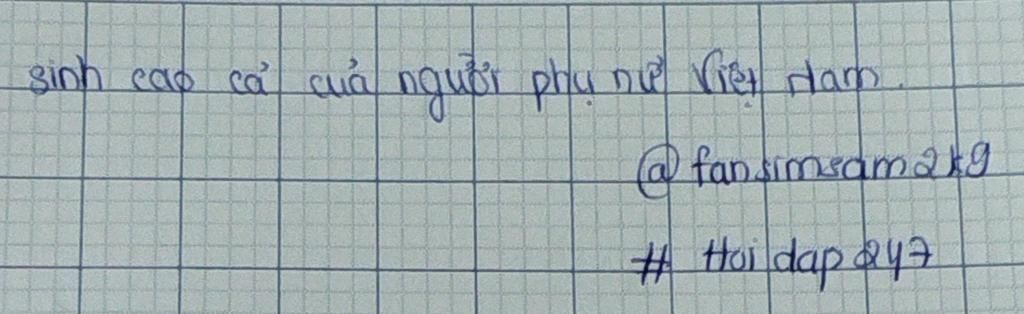 sinh cao cả của người phụ nữ Việt Nam.
@fansimsam2k9
# Hoidap247